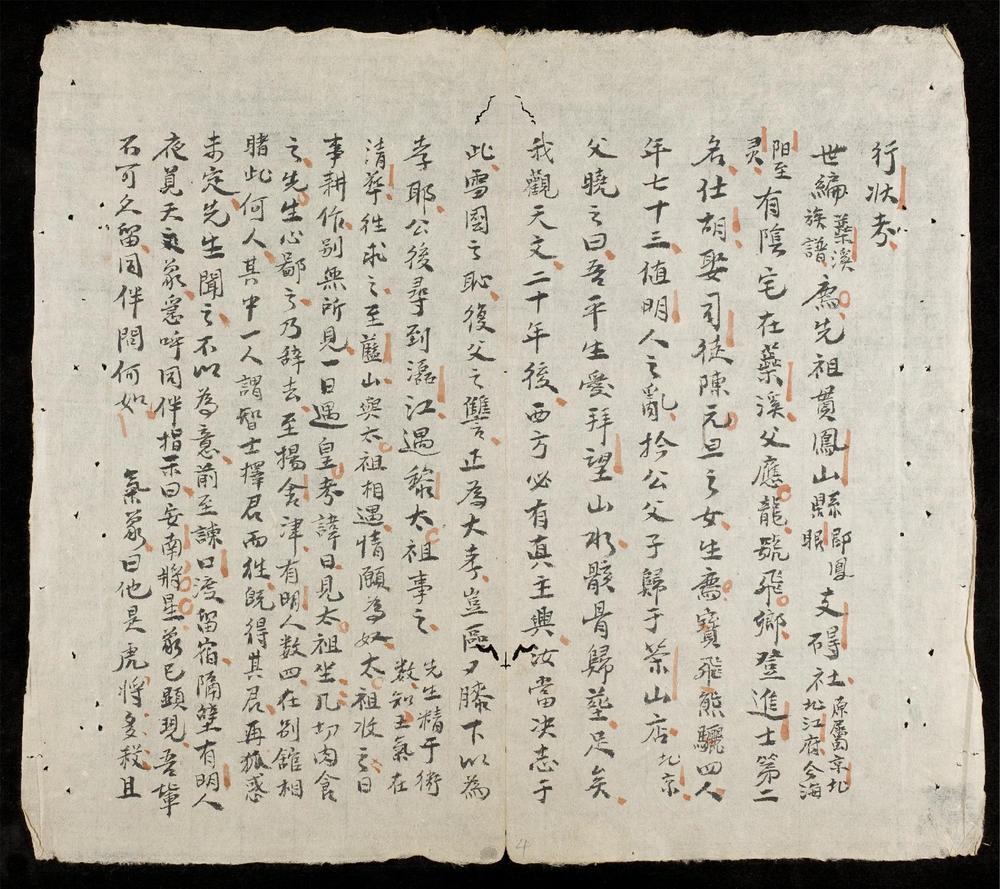 行狀考
世編蘂溪族譜廌先祖貫鳳山縣即鳳眼支碍社原屬京北北江府今海
阳至灵有陰宅在蘂溪父應龍號飛卿登進士第二
名仕胡娶司徒陳元旦之女生廌寶飛熊驪四人
年七十三值明人之亂拎公父子歸于茶山店北京
父曉之曰吾平生愛拜望山水骸骨歸塟足矣
我觀天文二十年後西方必有真主興汝當決志于
此雪國之恥復父之讐正為大孝豈區々膝下以為
孝耶公後尋到瀘江遇黎太祖事之先生精于術數知王氣在
清華徃求之至藍山與太祖相遇情願為奴太祖收之日
事耕作別無所見一日遇皇考諱日見太祖坐几切肉食
之先生心鄙之乃辞去至揚舍津有明人数四在別舘相
賭此何人其中一人謂智士擇君而徃既得其君再狐惑
未定先生聞之不以為意前至諫口渡留宿隔壁有明人
夜覓天文象急呼同伴指示曰安南將星象已顯現吾軰
不可久留同伴問何如 氣象曰他是虎將多殺且